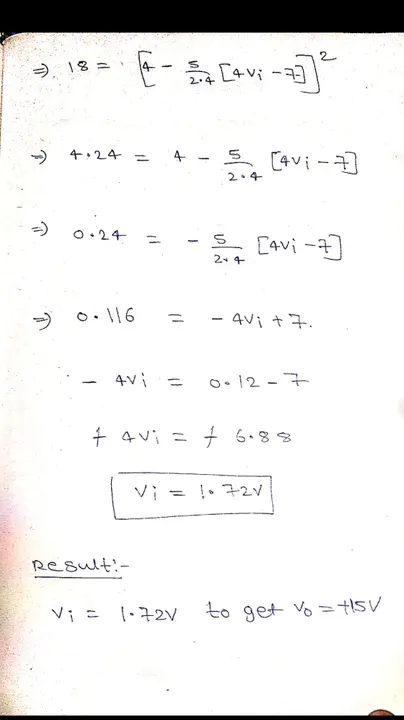 ⇒ 18 = [4 - 5/2.4 [4Vi - 7]]²
⇒ 4.24 = 4 - 5/2.4 [4Vi - 7]
⇒ 0.24 = - 5/2.4 [4Vi - 7]
⇒ 0.116 = - 4Vi + 7.
- 4Vi = 0.12 - 7
+ 4Vi = + 6.88
Vi = 1.72V
Result:-
Vi = 1.72V to get Vo = +15V